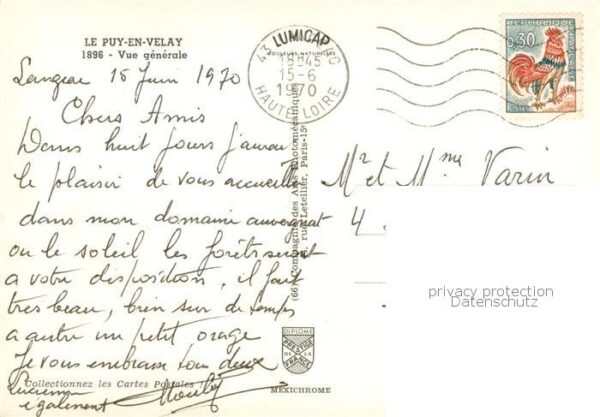 LE PUY-EN-VELAY
1896 - Vue générale
Langeac 15 Juin 1970
Chers Amis
Dans huit jours j'aurai
le plaisir de vous accueillir
dans mon domaine auvergnat
ou le soleil les forêts seront
a votre disposition, il fait
très beau, bien sur de temps
a autre un petit orage
Je vous embrasse tous deux
Lucienne
egalement
Collectionnez les Cartes Postales !
LUMICAP
COULEURS NATURELLES
43
18H45
15-6
1970
HAUTE LOIRE
(66) Compagnie des Arts Photomécaniques
rue Letellier, Paris-15e
DIPLOME
PRESTIGE
DE LA
FRANCE
MEXICHROME
REPUBLIQUE
0,30
POSTES
Mr et Mme Varin
4
privacy protection
Datenschutz